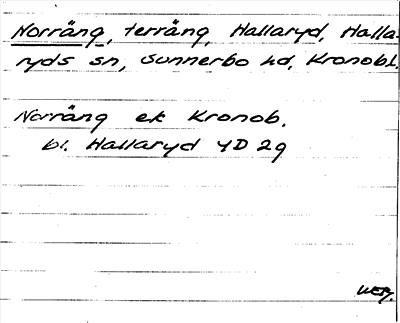 Norräng, terräng, Hallaryd, Halla-
ryds sn, Sunnerbo hd, Kronob.l.
Norräng ek Kronob.
bl. Hallaryd 4D 2g